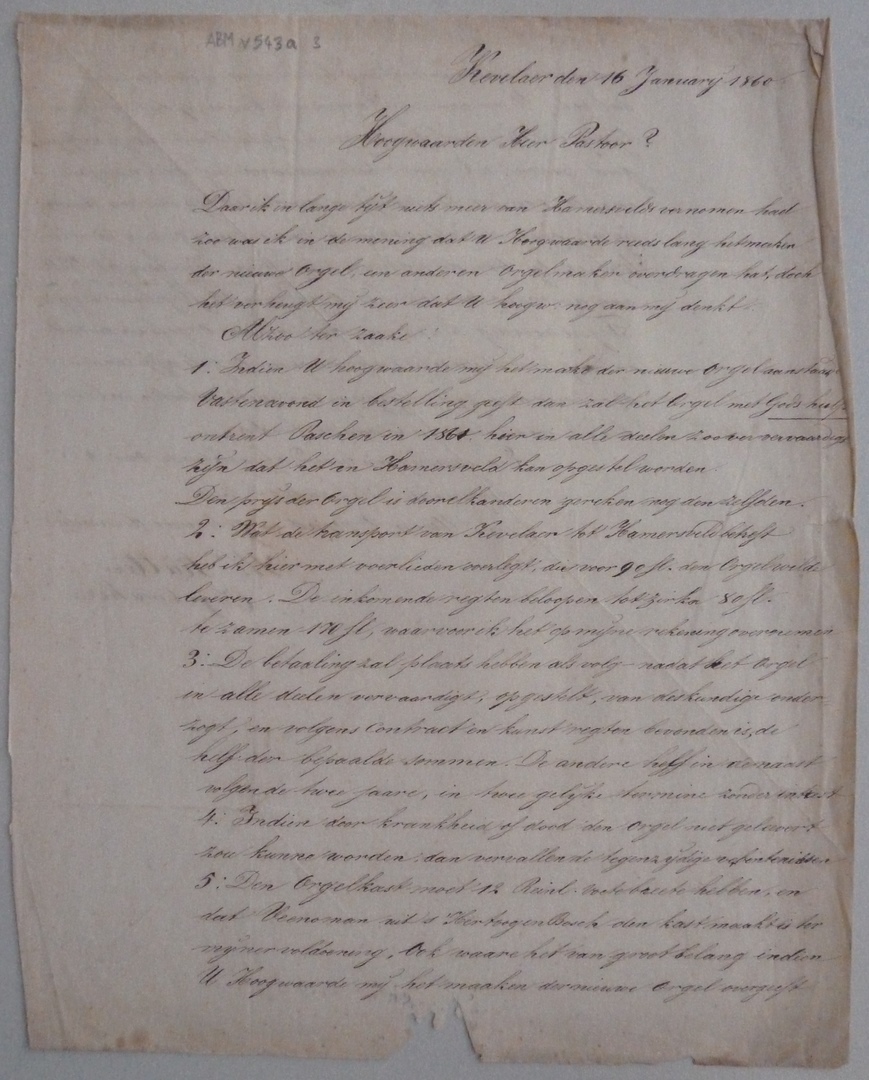 ABM v543a 3
Kevelaer den 16 January 1860
Hoogwaarden Heer Pastoor?
Daar ik in lange tijt niets meer van Hamersveld vernomen had
zoo was ik in de mening dat U Hoogwaarde reeds lang het maken
der nieuwe Orgel, een anderen Orgelmaker overdragen hat, doch
het verheugt mij zeer dat U hoogw. nog aan mij denkt.
Alzoo ter zaake:
1: Indien U hoogwaarde mij het make der nieuwe Orgel aanstaan
Vastenavond in bestelling geft dan zal het Orgel met Gods hulp
ontrent Paschen in 1861 hier in alle deelen zoo ver vervaardig
zijn dat het in Hamersveld kan opgestel worden.
Den prijs der Orgel is door elkanderen gereken nog den zelfden.
2: Wat de transport van Kevelaer tot Hamersveld betreft
heb ik hier met voerlieden overlegt, die voor 90 fl. den Orgel wilde
leveren. De inkomende regten beloopen tot zirka 80 fl.
te zamen 170 fl, waarvoor ik het op mijne rekening overneemen
3: De betaaling zal plaats hebben als volg nadat het Orgel
in alle deelen vervaardigt, opgestelt, van deskundige onder-
zogt, en volgens Contract en kunst regten bevonden is, de
helf der bepaalde sommen. De andere helf in de naast
volgende twee jaare, in twee gelijke termine zonder intrest
4: Indien door krankheid of dood den Orgel niet gelevert
zou kunne worden: dan vervallen de tegenzijdige
5: Den Orgelkast moet 12 Reinl. voet breete hebben, en
dat Veeneman uit s HertoogenBosch den kast maakt is ter
mijner voldoening. Ook waare het van groot belang indien
U Hoogwaarde mij het maaken der nieuwe Orgel overgeeft